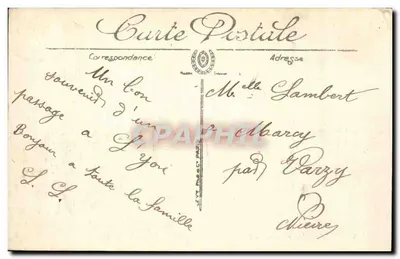 Carte Postale
Correspondance
Adresse
Un bon
souvenir d'un
passage a
Lyon
Bonjour a toute la famille
L. L.
Melle Lambert
a Marcy
par Varzy
Nièvre
CPAPHIL